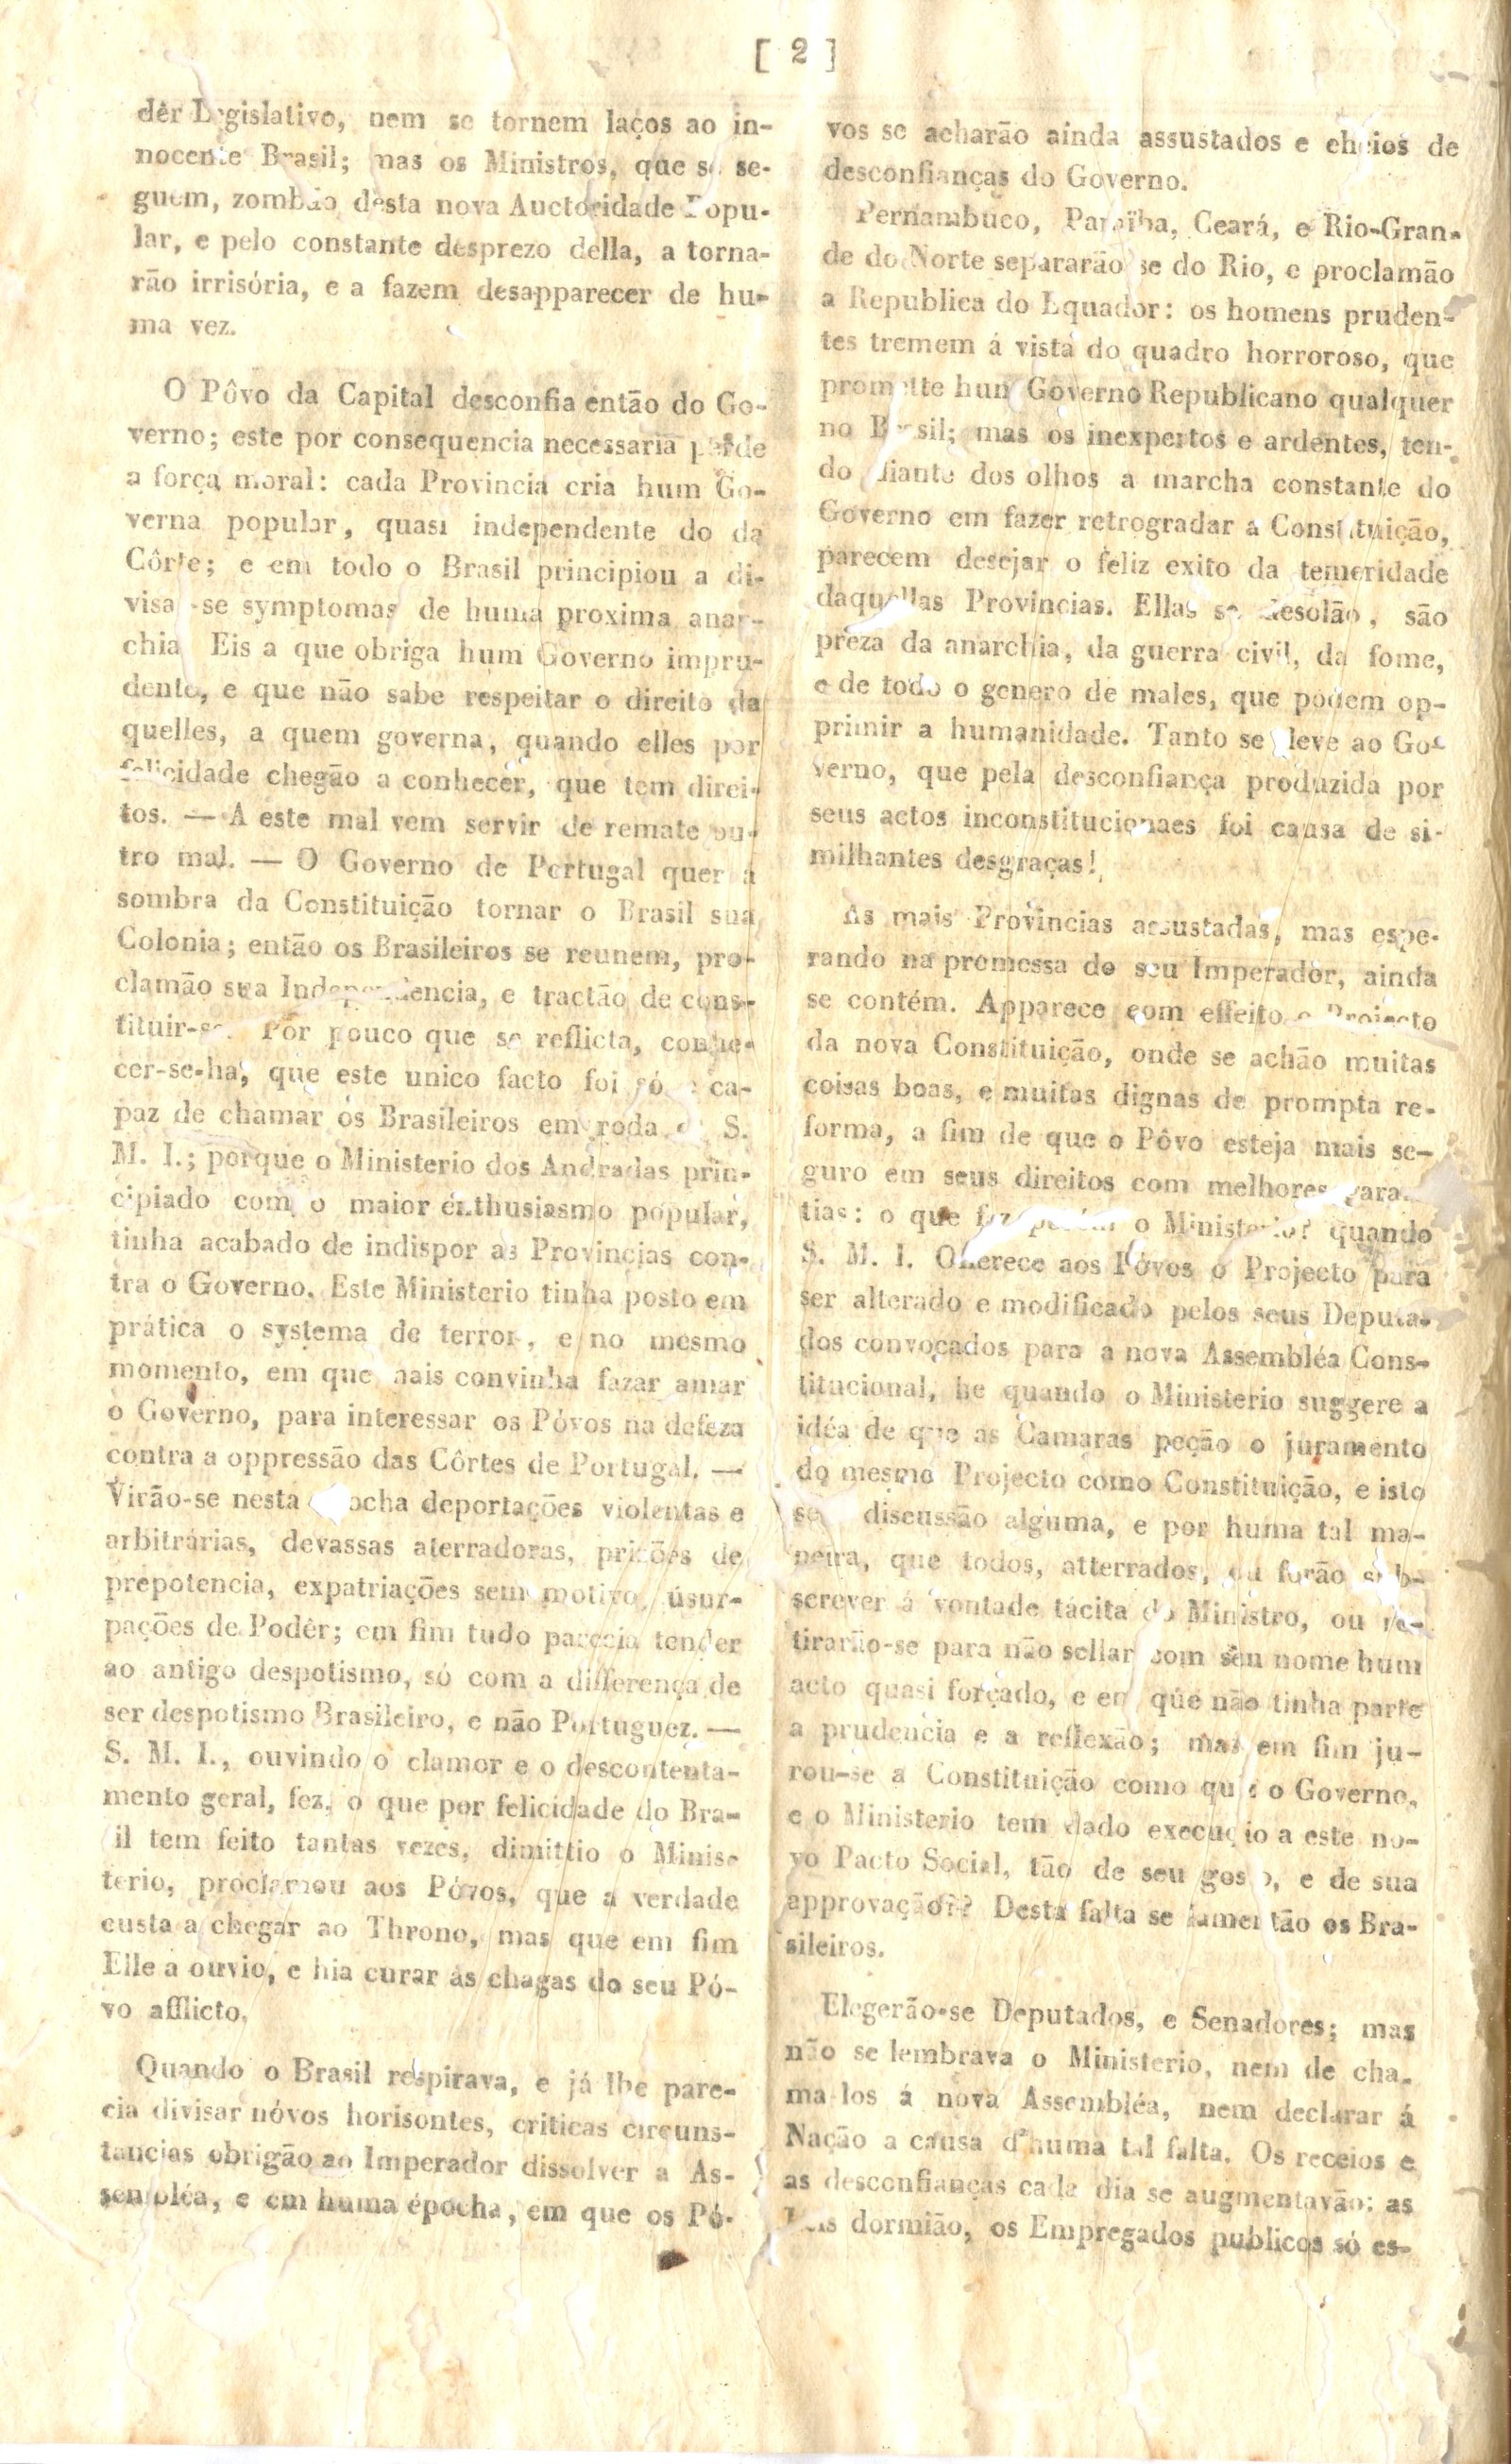 [ 2 ]
dêr Legislativo, nem se tornem laços ao in-
nocente Brasil; mas os Ministros, que se se-
guem, zombão désta nova Auctoridade Popu-
lar, e pelo constante desprezo della, a torna-
rão irrisória, e a fazem desapparecer de hu-
ma vez.
O Pôvo da Capital desconfia então do Go-
verno; este por consequencia necessaria perde
a força moral: cada Provincia cria hum Go-
verna popular, quasi independente do da
Côrte; e em todo o Brasil principiou a di-
visar-se symptomas de huma proxima anar-
chia Eis a que obriga hum Governo impru-
dente, e que não sabe respeitar o direito da
quelles, a quem governa, quando elles por
felicidade chegão a conhecer, que tem direi-
tos. — A este mal vem servir de remate ou-
tro mal. — O Governo de Portugal quer á
sombra da Constituição tornar o Brasil sua
Colonia; então os Brasileiros se reunem, pro-
clamão sua Independencia, e tractão de cons-
tituir-se. Por pouco que se reflicta, conhe-
cer-se-ha, que este unico facto foi só ca-
paz de chamar os Brasileiros em roda S.
M. I.; porque o Ministerio dos Andradas prin-
cipiado com o maior enthusiasmo popular,
tinha acabado de indispor as Provincias con-
tra o Governo. Este Ministerio tinha posto em
prática o systema de terror, e no mesmo
momento, em que mais convinha fazar amar
o Governo, para interessar os Póvos na defeza
contra a oppressão das Côrtes de Portugal. —
Virão-se nesta deportações violentas e
arbitrárias, devassas aterradoras, prisões de
prepotencia, expatriações sem motivo, úsur-
pações de Podêr; em fim tudo parecia tender
ao antigo despotismo, só com a differença de
ser despotismo Brasileiro, e não Portuguez. —
S. M. I., ouvindo o clamor e o descontenta-
mento geral, fez, o que por felicidade do Bra-
il tem feito tantas vezes, dimittio o Minis-
terio, proclamou aos Póvos, que a verdade
custa a chegar ao Throno, mas que em fim
Elle a ouvio, e hia curar as chagas do seu Pó-
vo afflicto.
Quando o Brasil respirava, e já lhe pare-
cia divisar nóvos horisontes, criticas circuns-
tancias obrigão ao Imperador dissolver a As-
sembléa, e em huma épocha, em que os Pó-
vos se acharão ainda assustados e cheios de
desconfianças do Governo.
Pernambuco, Paraïba, Ceará, e Rio-Gran-
de do Norte separarão se do Rio, e proclamão
a Republica do Equador: os homens pruden-
tes tremem á vista do quadro horroroso, que
promette hum Governo Republicano qualquer
no Brasil; mas os inexpertos e ardentes, ten-
do diante dos olhos a marcha constante do
Governo em fazer retrogradar a Constituição,
parecem desejar o feliz exito da temeridade
daquellas Provincias. Ellas se desolão, são
preza da anarchia, da guerra civil, da fome,
e de todo o genero de males, que podem op-
primir a humanidade. Tanto se deve ao Go-
verno, que pela desconfiança produzida por
seus actos inconstitucionaes foi causa de si-
milhantes desgraças!
As mais Provincias assustadas, mas espe-
rando na promessa do seu Imperador, ainda
se contém. Apparece com effeito o Projecto
da nova Constituição, onde se achão muitas
coisas boas, e muitas dignas de prompta re-
forma, a fim de que o Pôvo esteja mais se-
guro em seus direitos com melhores garan-
tias: o que faz porém o Ministerio? quando
S. M. I. Offerece aos Póvos o Projecto para
ser alterado e modificado pelos seus Deputa-
dos convocados para a nova Assembléa Cons-
titucional, he quando o Ministerio suggere a
idéa de que as Camaras peção o juramento
do mesmo Projecto como Constituição, e isto
sem discussão alguma, e por huma tal ma-
neira, que todos, atterrados, ou forão sub-
screver á vontade tácita do Ministro, ou re-
tirarão-se para não sellar com seu nome hum
acto quasi forçado, e em que não tinha parte
a prudencia e a reflexão; mas em fim ju-
rou-se a Constituição como quiz o Governo,
e o Ministerio tem dado execução a este no-
vo Pacto Social, tão de seu gosto, e de sua
approvação?? Desta falta se lamentão os Bra-
sileiros.
Elegerão-se Deputados, e Senadores; mas
não se lembrava o Ministerio, nem de cha-
ma los á nova Assembléa, nem declarar á
Nação a causa d'huma tal falta. Os receios e
as desconfianças cada dia se augmentavão: as
Leis dormião, os Empregados publicos só es-